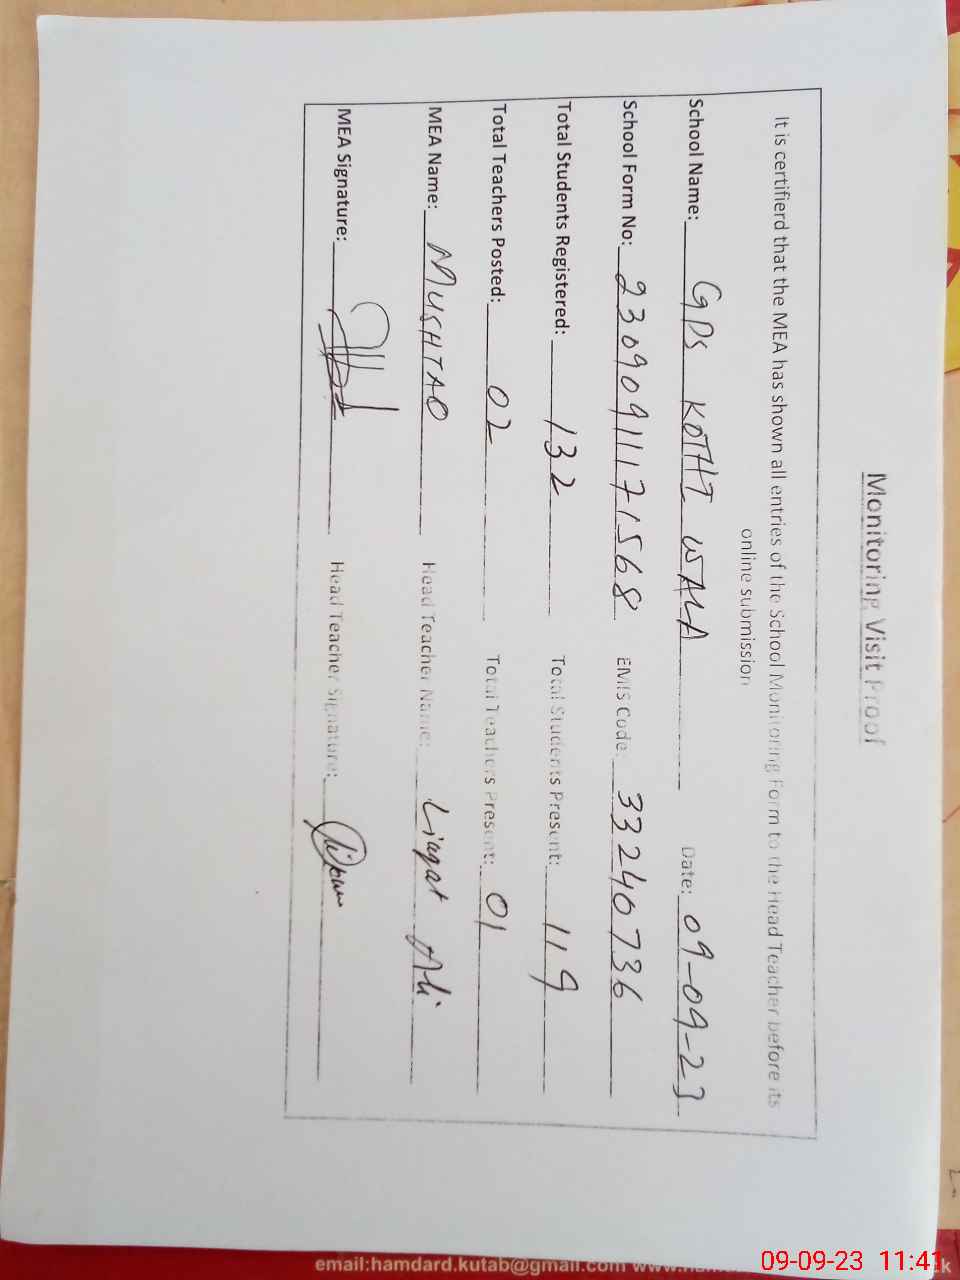 Monitoring Visit Proof
It is certifierd that the MEA has shown all entries of the School Monitoring Form to the Head Teacher before its
online submission
School Name: GPS KOTHI WALA Date: 09-09-23
School Form No: 23090911171568 EMIS Code: 33240736
Total Students Registered: 132 Total Students Present: 119
Total Teachers Posted: 02 Total Teachers Present: 01
MEA Name: MUSHTAQ Head Teacher Name: Liaqat Ali
MEA Signature: Head Teacher Signature:
email:hamdard.kutab@gmail.com
09-09-23 11:41